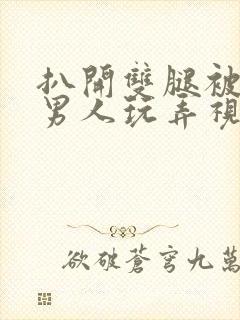 扒開雙腿被
男人玩弄視
欲破蒼穹九萬